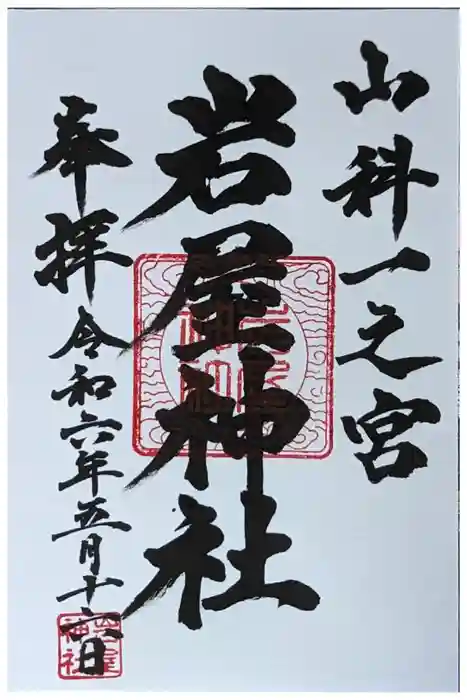 山科一之宮
岩屋神社
奉拝
令和六年五月十六日
岩屋神社